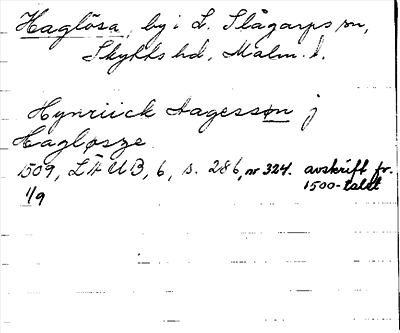 Haglösa, by i L. Slågarps sn,
Skytts hd, Malm. l.
Hynriick Aagessøn j
Hagløsze
1509, LÄUB, 6, s. 286, nr 324. avskrift fr.
1500-talet
1/9